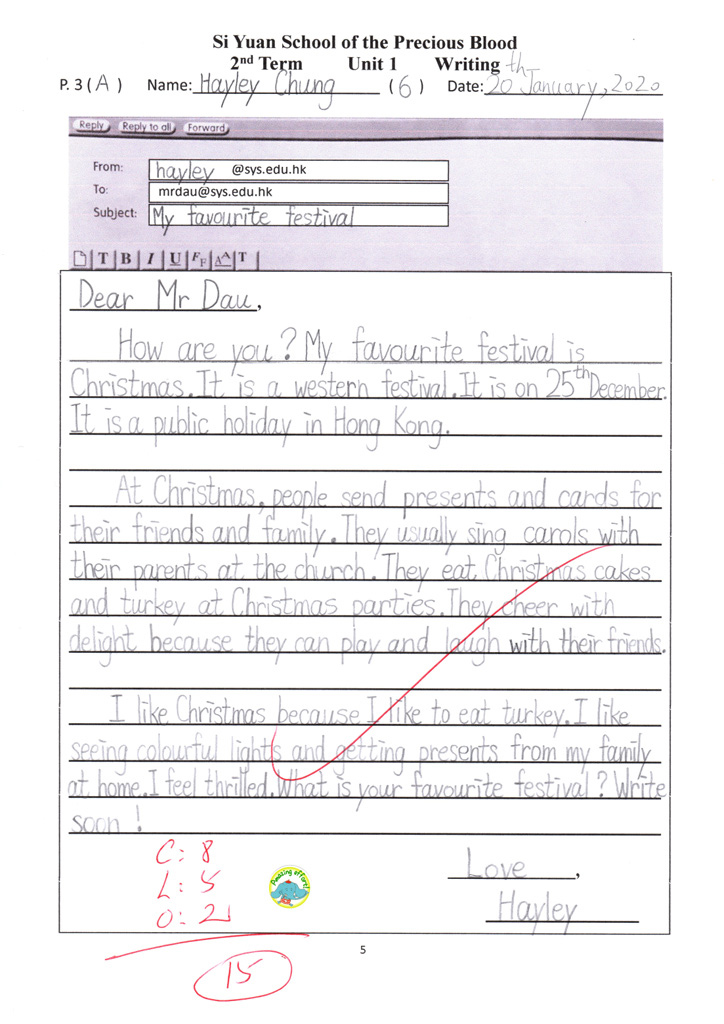 Si Yuan School of the Precious Blood
2nd Term Unit 1 Writing
P. 3 (A) Name: Hayley Chung (6) Date: 20th January, 2020
Reply Reply to all Forward
From: hayley @sys.edu.hk
To: mrdau@sys.edu.hk
Subject: My favourite festival
T B I U FF AA T
Dear Mr Dau,
How are you? My favourite festival is
Christmas. It is a western festival. It is on 25th December.
It is a public holiday in Hong Kong.
At Christmas, people send presents and cards for
their friends and family. They usually sing carols with
their parents at the church. They eat Christmas cakes
and turkey at Christmas parties. They cheer with
delight because they can play and laugh with their friends.
I like Christmas because I like to eat turkey. I like
seeing colourful lights and getting presents from my family
at home. I feel thrilled. What is your favourite festival? Write
soon!
C: 8
L: 5
O: 2
Amazing effort!
Love,
Hayley
5
15